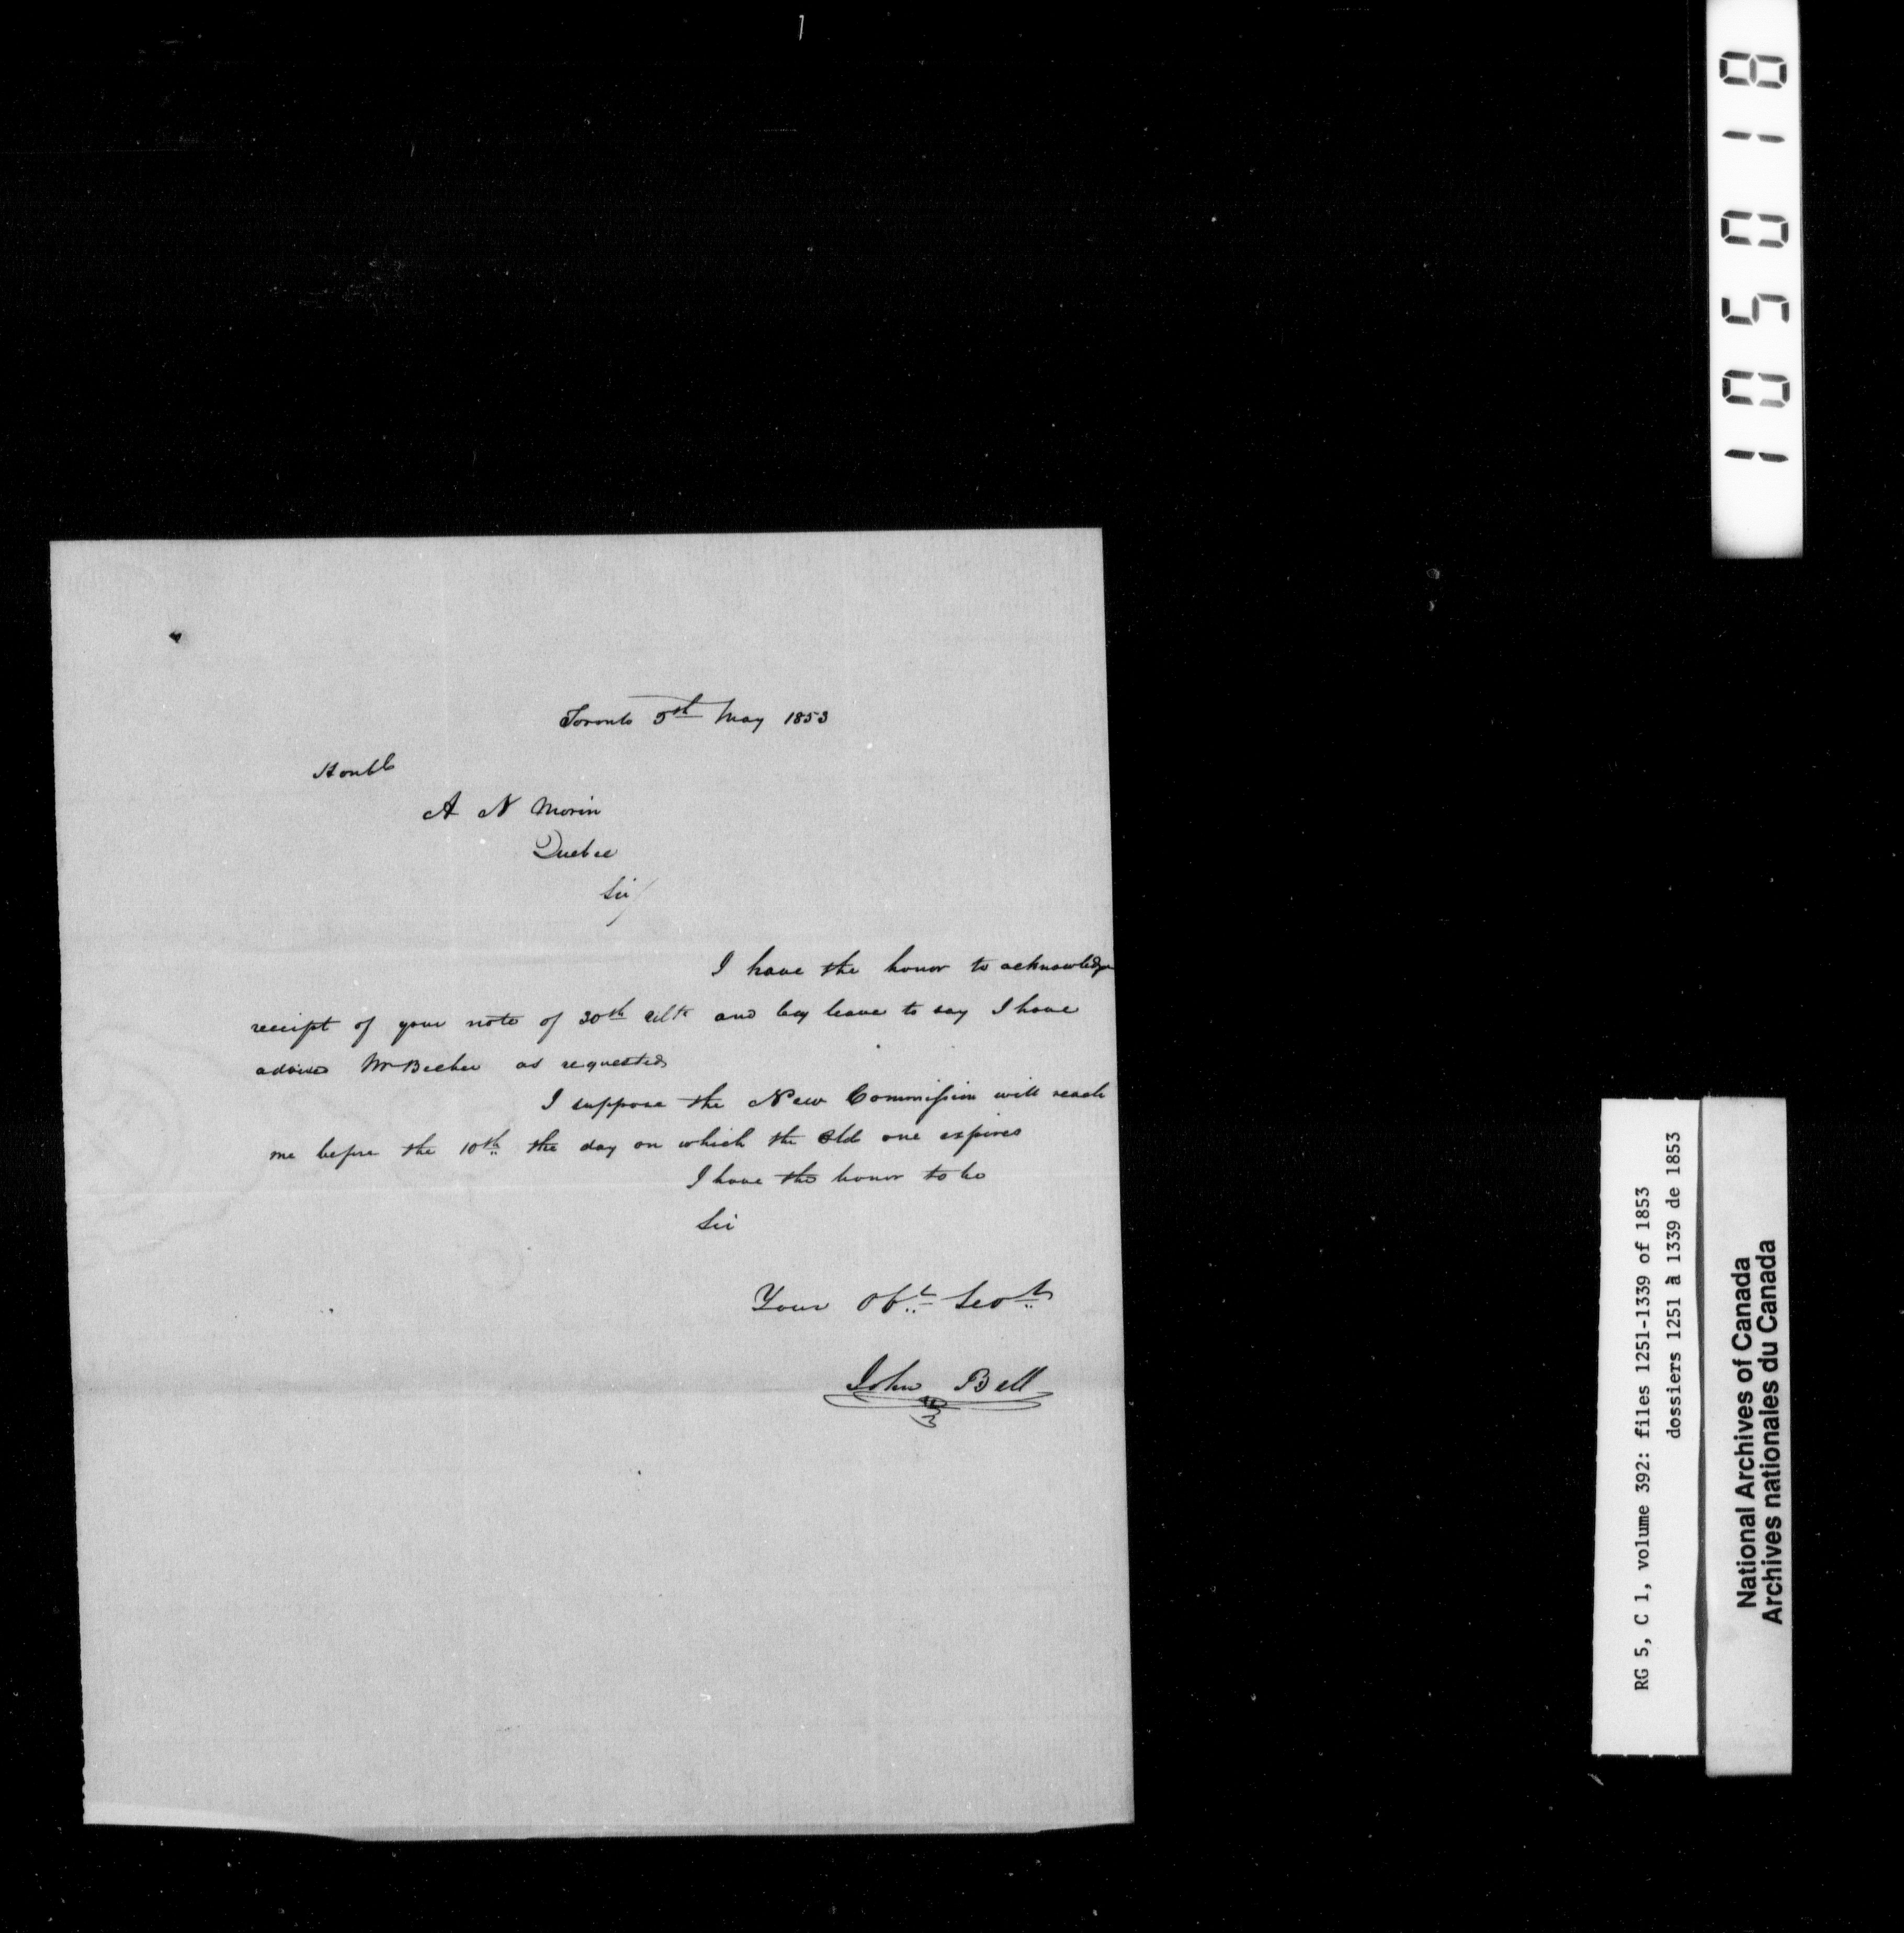 Toronto 5th May 1853
Honble
A N Morin
Quebec
Sir/
I have the honor to acknowledge
receipt of your note of 30th Ulto and beg leave to say I have
advised Mr Becher as requested
I suppose the New Commission will reach
me before the 10th the day on which the Old one expires
I have the honor to be
Sir
Your Obt Servt
John Bell
105018
RG 5, C 1, volume 392: files 1251-1339 of 1853
dossiers 1251 à 1339 de 1853
National Archives of Canada
Archives nationales du Canada